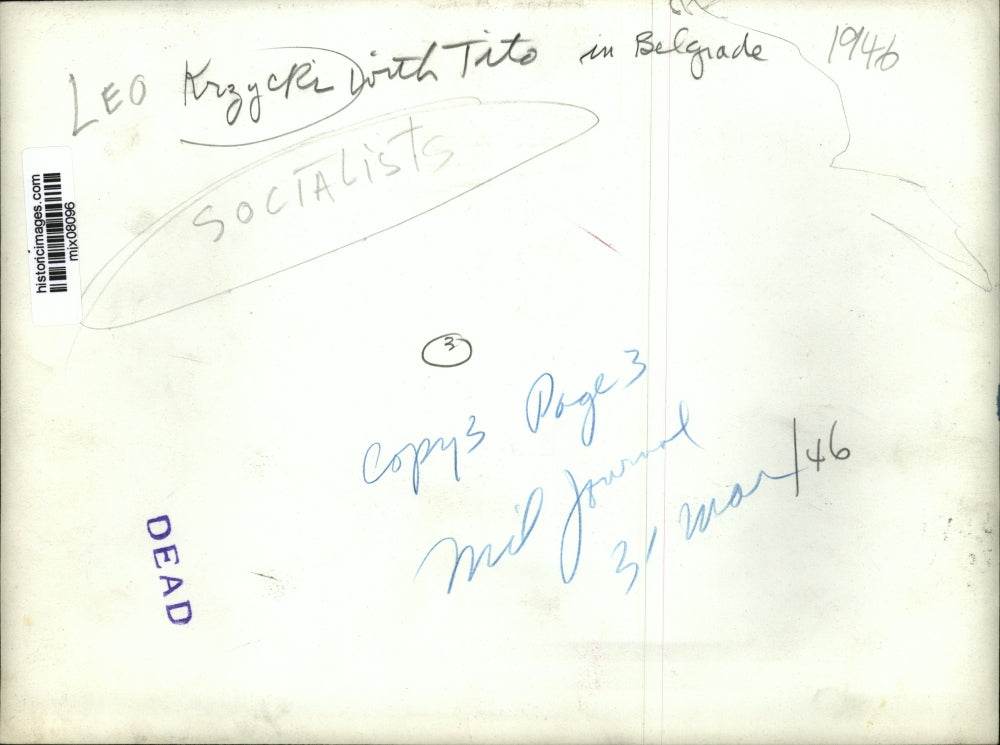 LEO Krzycki with Tito in Belgrade 1946
SOCIALISTS
historicimages.com
mix08096
3
Copy 3 Page 3
Mil Journal
31 Mar/46
DEAD